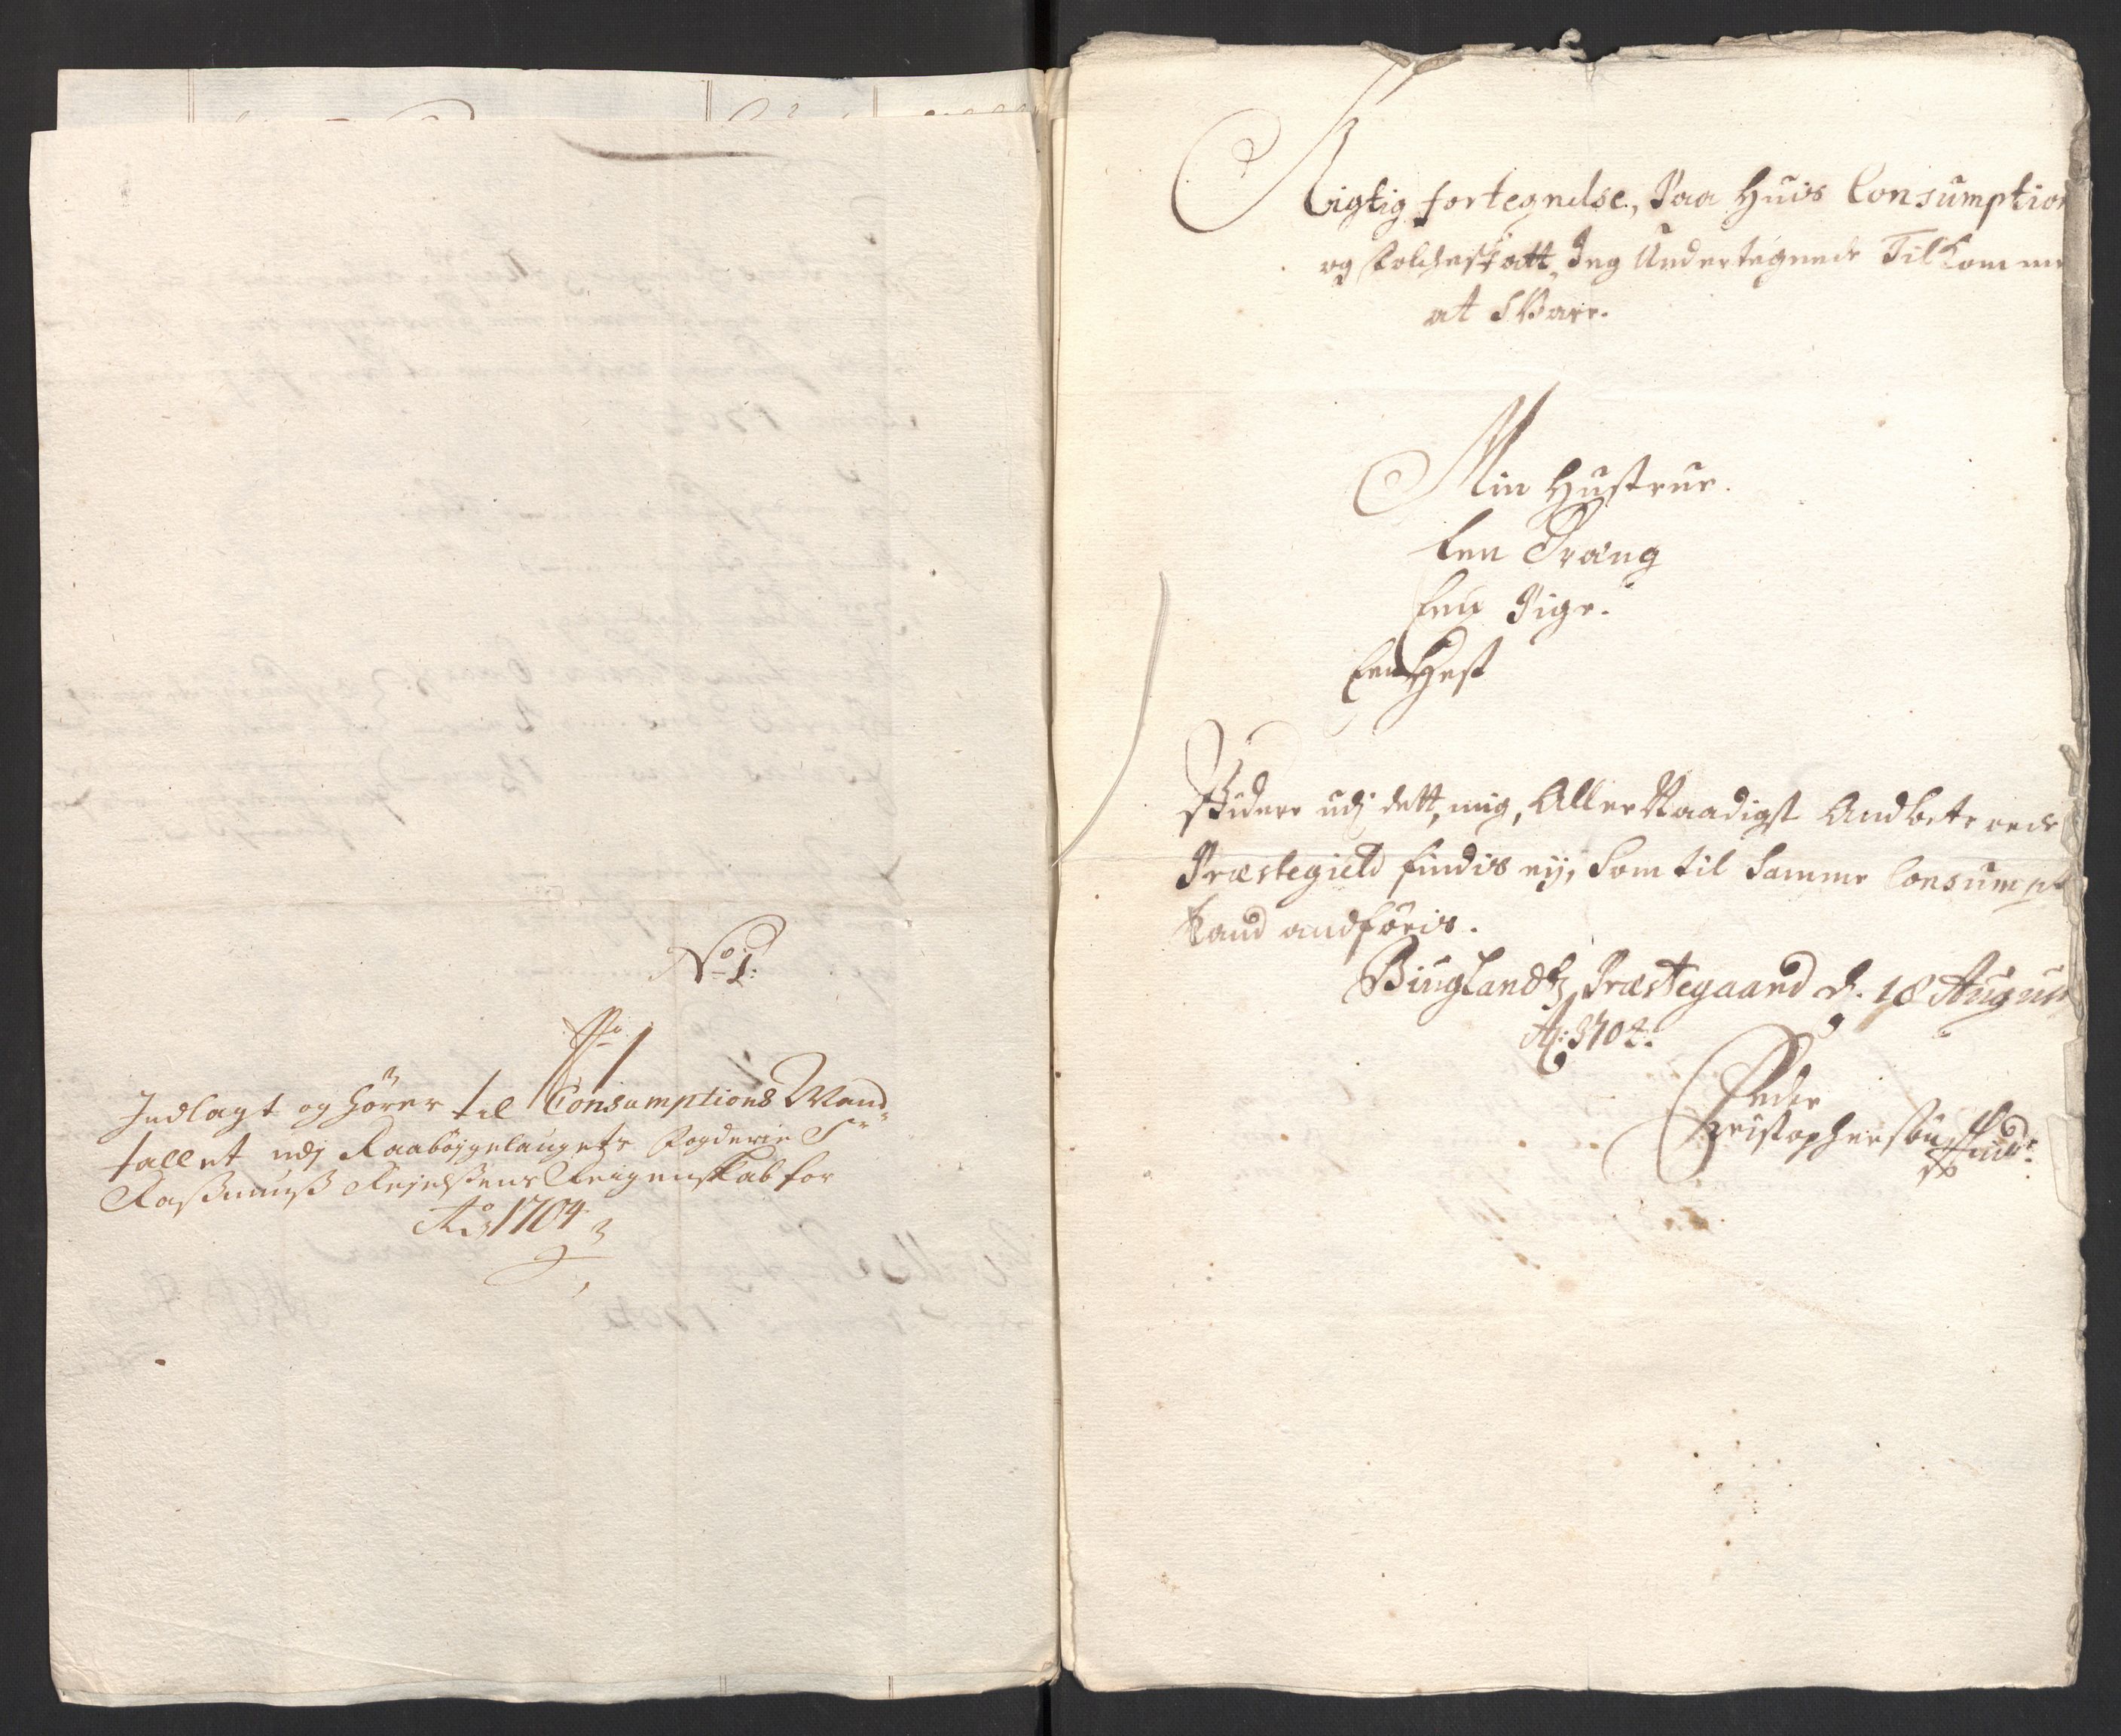 No 1:
Indlagt og hörer til Consumptions Mand-
tallet udj Raabøygelaugetz Fogderie Sr
Rasmuuss Rejelssens Reigenskab for
Ao 1704
Rigtig fortegnelse, Paa Huis Consumption
og Folcheskatt Jeg Undertegnede Tilkommer
at SVare.
Min Hustrue.
Een Dræng
Een Pige.
Een Hest
Videre udj dett, mig, AllerNaadigst Andbetroede
Præstegield findis eij, Som til Samme Consumpt
kand andföris.
Biuglandtz Præstegaard d. 18 August
Ao: 1704:
Peder
Christophersøn